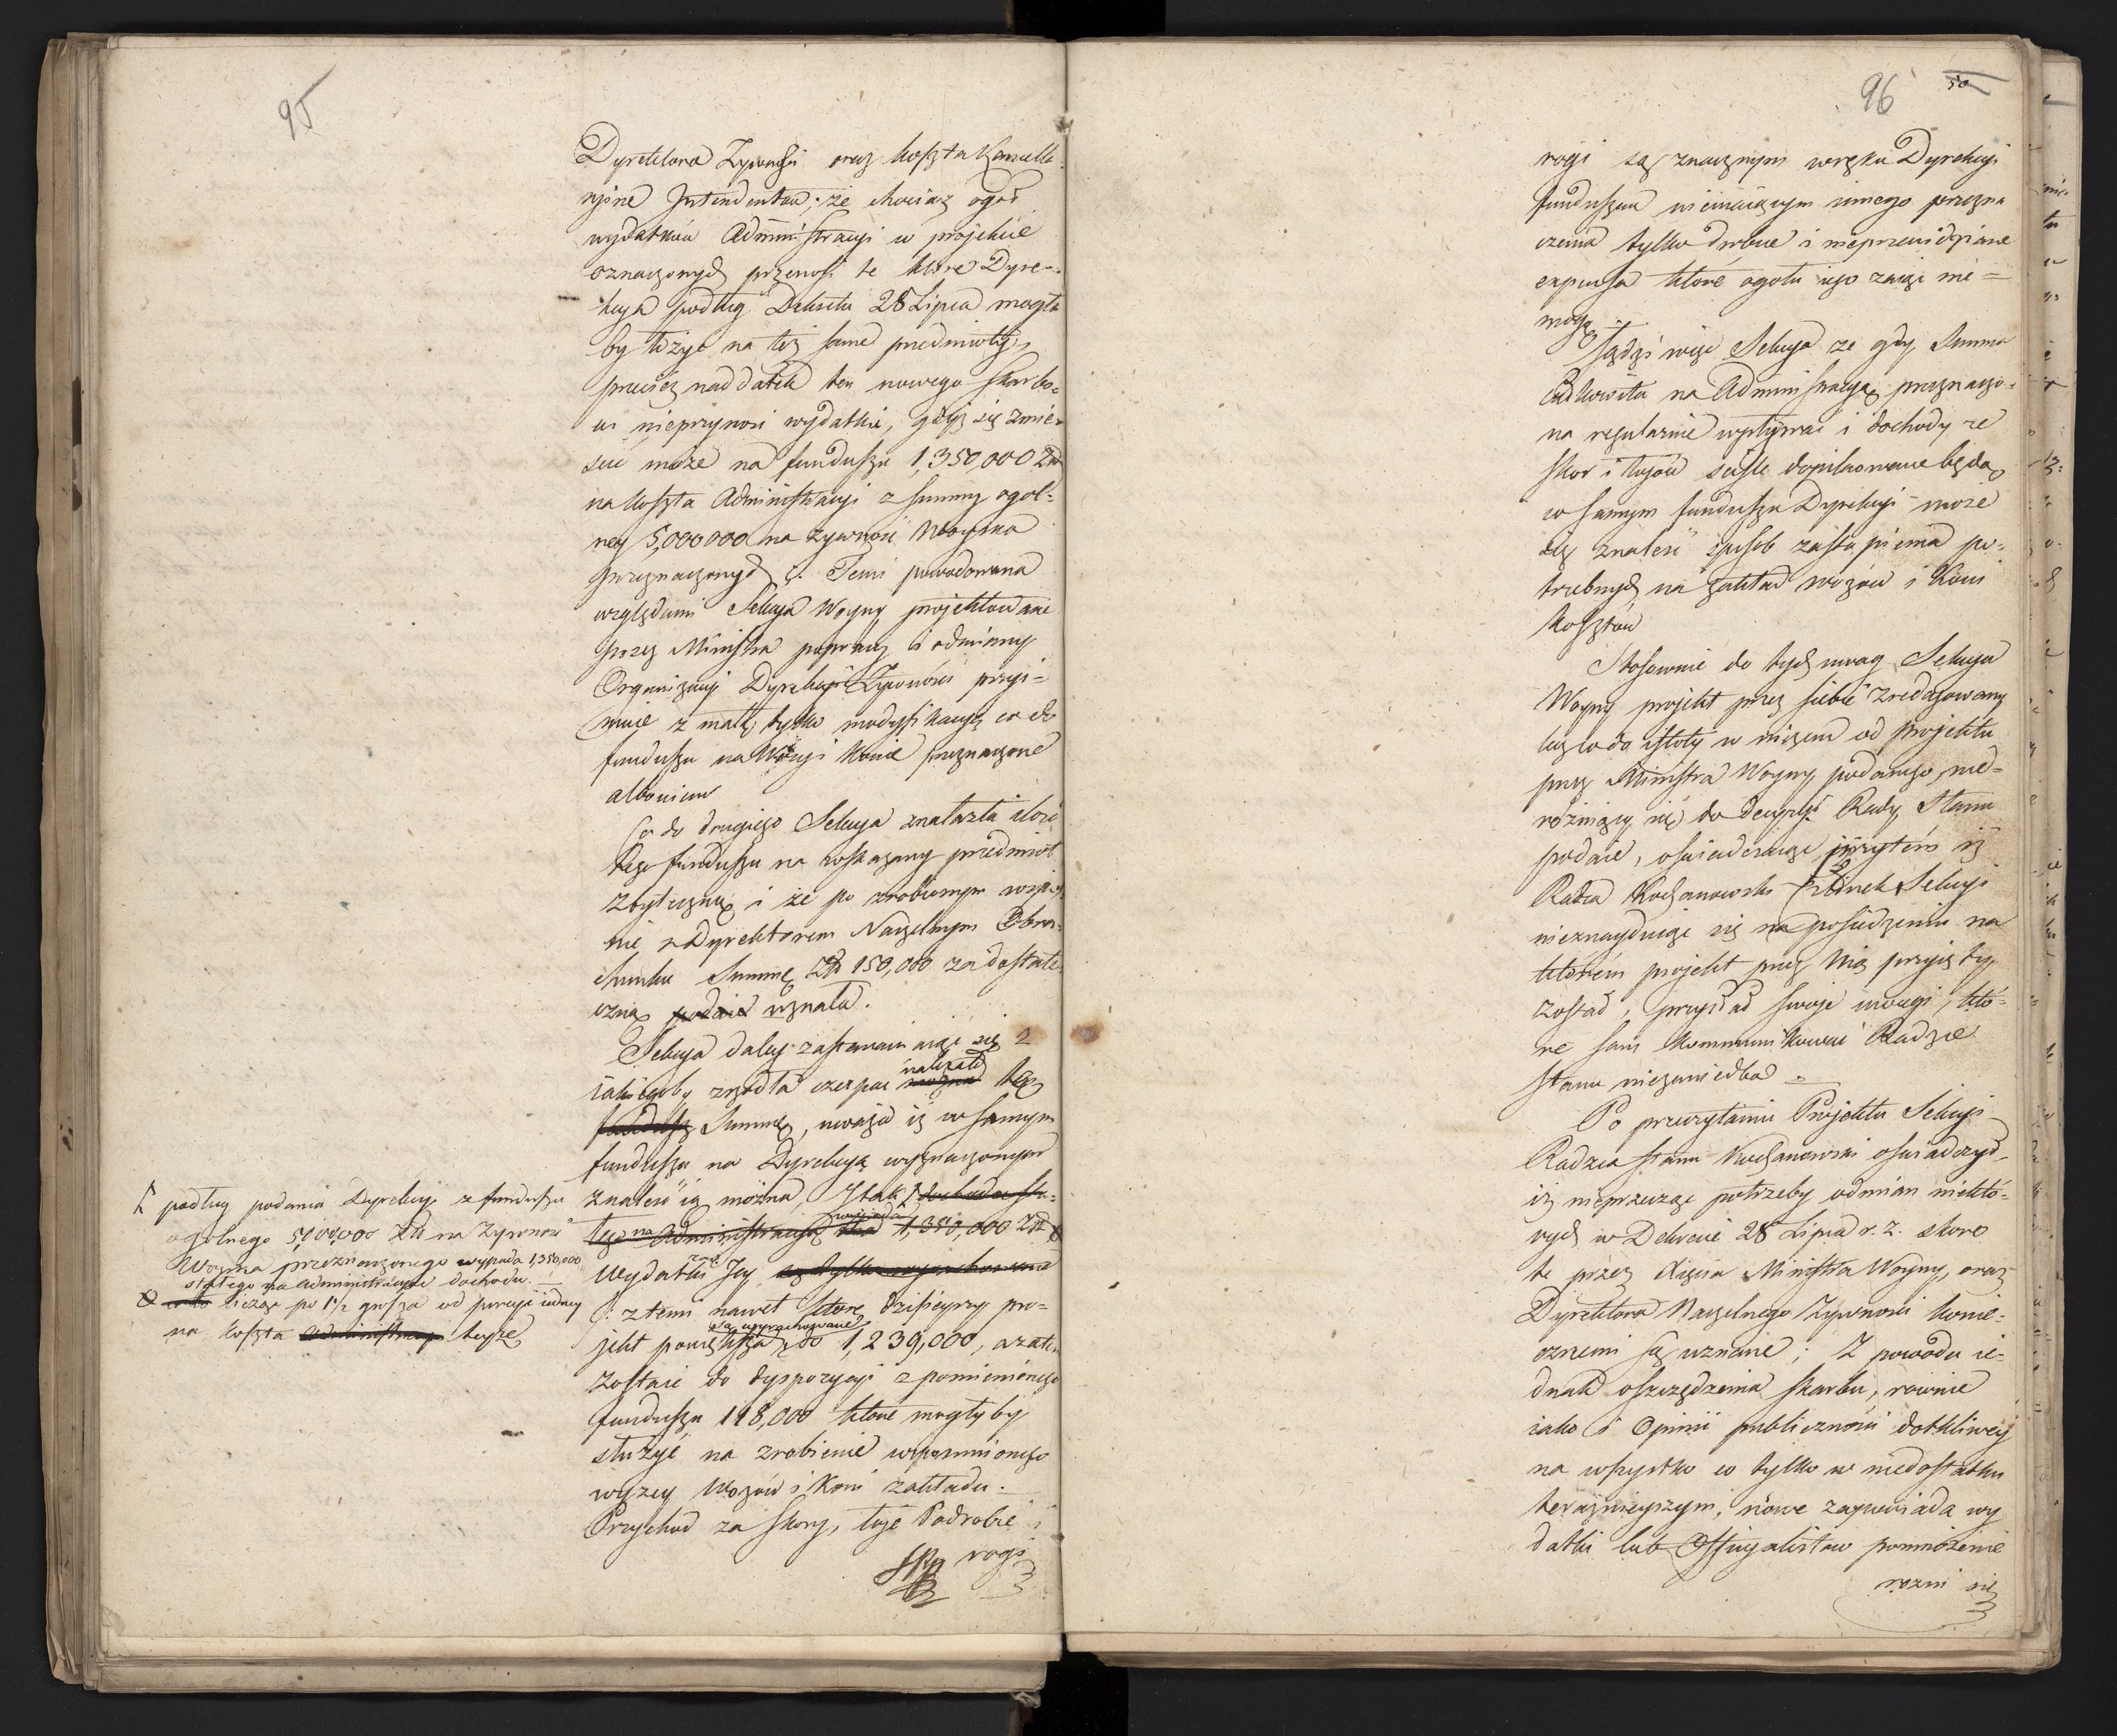 95
Dyrektora Żywności oraz koszta Kancella-
ryine Intendentów; że chociaż ogół
wydatków Administracyi w projekcie
oznaczonych przenosi te które Dyre-
kcya podług Dekretu 28 Lipca mogła
by liczyć na też same przedmioty,
przecież naddatek ten nowego skarbo-
wi nieprzynosi wydatku, gdyż się zmie-
scić może na funduszu 1,350,000 Zł
na koszta Administracyi z summy ogol-
ney 5,000,000 na żywność Woyska
przeznaczonych. Temi powodowana
względami Sekcya Woyny projektowane
przez Ministra poprawy i odmiany
Organizacyi Dyrekcyi Żywności przyi-
muie z małą tylko modyfikacyą co do
funduszu na Wozy i Konie przeznaczone
albowiem
Co do drugiego Sekcya znalazła ilość
tego funduszu na wskazany przedmiot
zbyteczną i że po zrobionym wspól-
nie z Dyrektorem Naczelnym Obra-
chunku Summę Zł 150,000 za dostate-
czną podaie uznała.
Sekcya daley zastanawiaiąc się z
iakiegoby zrzodła czerpać można należało tęż
fundusz Summę, uważa iż w samym
funduszu na Dyrekcyą wyznaczonym
znaleść ią można, I tak Γ dochodu sta-
łego na Administracyą wypada 1,350,000 Zł
Wydatki zaś Jey
/: z temi nawet które dzisieyszy pro-
jekt powiększa są wyrachowane do 1,239,000, a zatem
zostaie do dyspozycyi z pomienionego
funduszu 118,000 które mogłyby
służyć na zrobienie wspomnionego
wyżey Wozów i Koni zakładu.
Przychod za skory, łoje Podrobie i
rogi
Γ podług podania Dyrekcyi z funduszu
ogólnego 5,100,000 Zł na Żywność
Woyska przeznaczonego wypada 1,350,000
stałego na administracyą dochodu.
licząc po 1 1/2 grosza od porcyi iedney
na koszta administracyi teyże
96
50
rogi są znacznym w ręku Dyrekcyi
funduszem niemaiącym innego przezna
czenia tylko drobne i nieprzewidziane
expensa które ogołu iego zaiąć nie=
mogą.
Sądzi więc Sekcya że gdy Summa
Całkowita na Administracyą przeznaczo-
na regularnie wpływać i dochody ze
skor i łojów scisle dopilnowane będą
w samym funduszu Dyrekcyi może
się znaleść sposob zastąpienia po-
trzebnych na zakład wozów i Koni
kosztów
Stosownie do tych uwag Sekcya
Woyny projekt przez siebie zredagowany
lecz co do istoty w niczem od projektu
przez Ministra Woyny podanego nie-
rożniący się do decyzyi Rady Stanu
podaie, oświadczaiąc przytém iż
Radca Kochanowski Członek Sekcyi
nieznayduiąc się na posiedzeniu na
którém projekt przez Nię przyięty
został, przysłał swoje uwagi, któ-
re sam kommunikować Radzie
Stanu niezaniedba.
Po przeczytaniu Projektu Sekcyi
Radzca Stanu Kochanowski oświadczył,
iż nieprzeczę potrzeby odmian niektó-
rych w Dekrecie 28 Lipca r. z. skoro
te przez Xięcia Ministra Woyny, oraz
Dyrektora Naczelnego Żywności konie-
cznemi są uznane; Z powodu ie-
dnak oszczędzenia skarbu, równie
iako i Opinii publiczności dotkliwey
na wszystko co tylko w niedostatku
teraznieyszym, nowe zapowiada wy
datki lub Officyalistow pomnożenie
rozni się